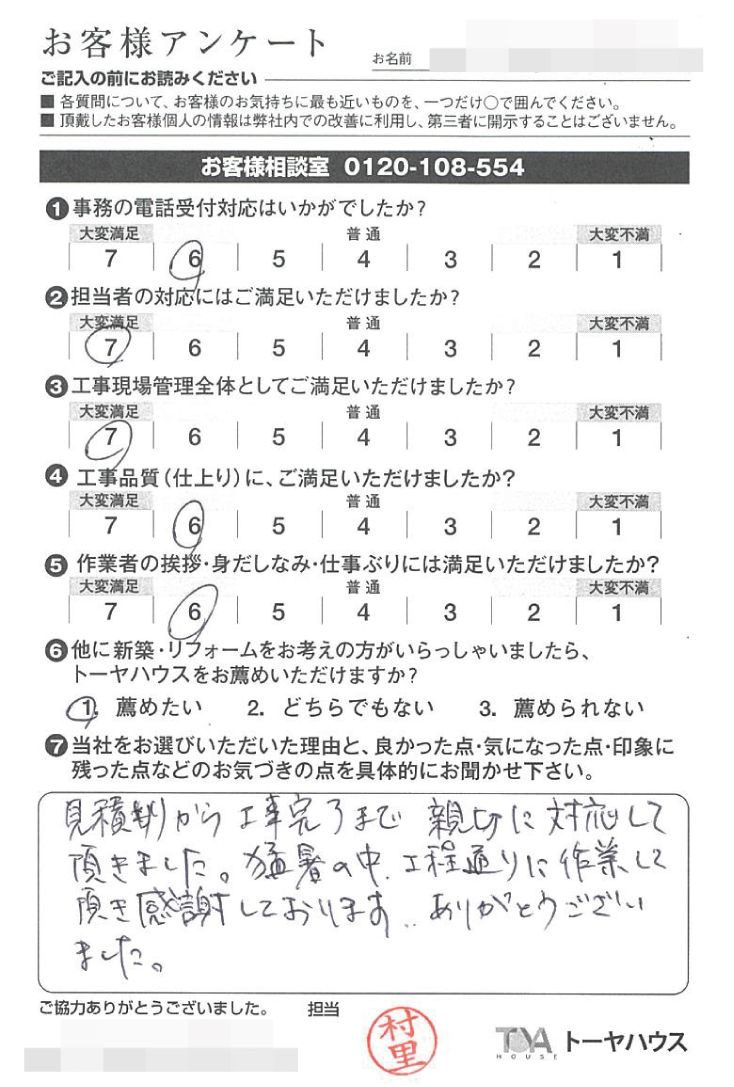 お客様アンケート
お名前
ご記入の前にお読みください
■ 各質問について、お客様のお気持ちに最も近いものを、一つだけ○で囲んでください。
■ 頂戴したお客様個人の情報は弊社内での改善に利用し、第三者に開示することはございません。
お客様相談室 0120-108-554
❶事務の電話受付対応はいかがでしたか?
大変満足 普通 大変不満
7 6 5 4 3 2 1
❷担当者の対応にはご満足いただけましたか?
大変満足 普通 大変不満
7 6 5 4 3 2 1
❸工事現場管理全体としてご満足いただけましたか?
大変満足 普通 大変不満
7 6 5 4 3 2 1
❹工事品質(仕上り)に、ご満足いただけましたか?
大変満足 普通 大変不満
7 6 5 4 3 2 1
❺作業者の挨拶・身だしなみ・仕事ぶりには満足いただけましたか?
大変満足 普通 大変不満
7 6 5 4 3 2 1
❻他に新築・リフォームをお考えの方がいらっしゃいましたら、
トーヤハウスをお薦めいただけますか?
1. 薦めたい 2. どちらでもない 3. 薦められない
❼当社をお選びいただいた理由と、良かった点・気になった点・印象に
残った点などのお気づきの点を具体的にお聞かせ下さい。
見積りから工事完了まで 親切に対応して
頂きました。猛暑の中、工程通りに作業して
頂き感謝しております。ありがとうござい
ました。
ご協力ありがとうございました。 担当
村里
TOYA HOUSE トーヤハウス